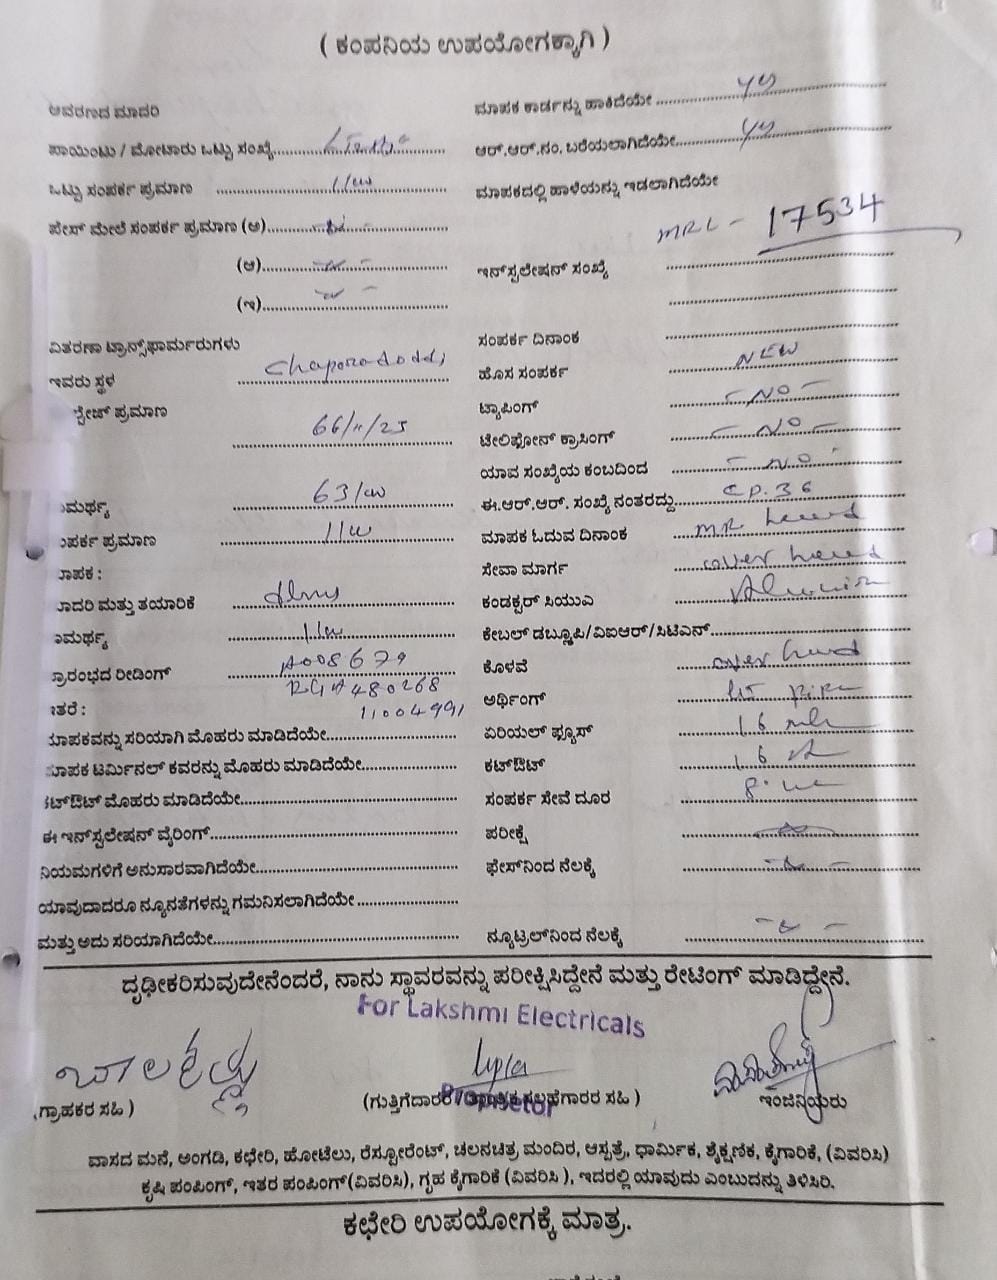 ( ಕಂಪನಿಯ ಉಪಯೋಗಕ್ಕಾಗಿ )
ಆವರಣದ ಮಾದರಿ
ಮಾಪಕ ಕಾರ್ಡನ್ನು ಹಾಕಿದೆಯೇ yes
ಪಾಯಿಂಟು / ಮೋಟಾರು ಒಟ್ಟು ಸಂಖ್ಯೆ
ಆರ್.ಆರ್.ನಂ. ಬರೆಯಲಾಗಿದೆಯೇ yes
ಒಟ್ಟು ಸಂಪರ್ಕ ಪ್ರಮಾಣ 1kw
ಮಾಪಕದಲ್ಲಿ ಹಾಳೆಯನ್ನು ಇಡಲಾಗಿದೆಯೇ
ಫೇಸ್ ಮೇಲೆ ಸಂಪರ್ಕ ಪ್ರಮಾಣ (ಅ)
MRL - 17534
(ಆ)
ಇನ್‌ಸ್ಟಲೇಷನ್ ಸಂಖ್ಯೆ
(ಇ)
ವಿತರಣಾ ಟ್ರಾನ್ಸ್‌ಫಾರ್ಮರುಗಳು
ಸಂಪರ್ಕ ದಿನಾಂಕ
ಇವರು ಸ್ಥಳ
ಹೊಸ ಸಂಪರ್ಕ NEW
ಪ್ರಮಾಣ 66/11/25
ಟ್ಯಾಪಿಂಗ್ - NO -
ಟೆಲಿಫೋನ್ ಕ್ರಾಸಿಂಗ್ - NO -
ಯಾವ ಸಂಖ್ಯೆಯ ಕಂಬದಿಂದ - NO
ಮರ್ಥ್ಯ 63/kw
ಈ.ಆರ್.ಆರ್. ಸಂಖ್ಯೆ ನಂತರದ್ದು CP.36
ಪರ್ಕ ಪ್ರಮಾಣ 1kw
ಮಾಪಕ ಓದುವ ದಿನಾಂಕ MR
ಾಪಕ :
ಸೇವಾ ಮಾರ್ಗ over head
ಾದರಿ ಮತ್ತು ತಯಾರಿಕೆ
ಕಂಡಕ್ಟರ್ ಸಿಯುವಿ
ಮರ್ಥ್ಯ 1kw
ಕೇಬಲ್ ಡಬ್ಲ್ಯೂಪಿ/ವಿಐಆರ್/ಸಿಟಿಎಸ್
ಾರಂಭದ ರೀಡಿಂಗ್ A008679
ಕೊಳವೆ over head
480268
ಅರ್ಥಿಂಗ್
ತರೆ : 11004991
ಾಪಕವನ್ನು ಸರಿಯಾಗಿ ಮೊಹರು ಮಾಡಿದೆಯೇ
ಏರಿಯಲ್ ಫ್ಯೂಸ್ 16
ಾಪಕ ಟರ್ಮಿನಲ್ ಕವರನ್ನು ಮೊಹರು ಮಾಡಿದೆಯೇ
ಕಟ್‌ಔಟ್ 16
ಕಟ್‌ಔಟ್ ಮೊಹರು ಮಾಡಿದೆಯೇ
ಸಂಪರ್ಕ ಸೇವೆ ದೂರ 8
ಈ ಇನ್‌ಸ್ಟಲೇಷನ್ ವೈರಿಂಗ್
ಪರೀಕ್ಷೆ
ನಿಯಮಗಳಿಗೆ ಅನುಸಾರವಾಗಿದೆಯೇ
ಫೇಸ್‌ನಿಂದ ನೆಲಕ್ಕೆ
ಯಾವುದಾದರೂ ನ್ಯೂನತೆಗಳನ್ನು ಗಮನಿಸಲಾಗಿದೆಯೇ
ಮತ್ತು ಅದು ಸರಿಯಾಗಿದೆಯೇ
ನ್ಯೂಟ್ರಲ್‌ನಿಂದ ನೆಲಕ್ಕೆ
ದೃಢೀಕರಿಸುವುದೇನೆಂದರೆ, ನಾನು ಸ್ಥಾವರವನ್ನು ಪರೀಕ್ಷಿಸಿದ್ದೇನೆ ಮತ್ತು ರೇಟಿಂಗ್ ಮಾಡಿದ್ದೇನೆ.
For Lakshmi Electricals
Proprietor
(ಗ್ರಾಹಕರ ಸಹಿ )
(ಗುತ್ತಿಗೆದಾರರ ಸಲಹೆಗಾರರ ಸಹಿ )
ಇಂಜಿನಿಯರು
ವಾಸದ ಮನೆ, ಅಂಗಡಿ, ಕಛೇರಿ, ಹೋಟೆಲು, ರೆಸ್ಟೋರೆಂಟ್, ಚಲನಚಿತ್ರ ಮಂದಿರ, ಆಸ್ಪತ್ರೆ, ಧಾರ್ಮಿಕ, ಶೈಕ್ಷಣಿಕ, ಕೈಗಾರಿಕೆ, (ವಿವರಿಸಿ)
ಕೃಷಿ ಪಂಪಿಂಗ್, ಇತರ ಪಂಪಿಂಗ್(ವಿವರಿಸಿ), ಗೃಹ ಕೈಗಾರಿಕೆ (ವಿವರಿಸಿ ), ಇದರಲ್ಲಿ ಯಾವುದು ಎಂಬುದನ್ನು ತಿಳಿಸಿರಿ.
ಕಛೇರಿ ಉಪಯೋಗಕ್ಕೆ ಮಾತ್ರ.